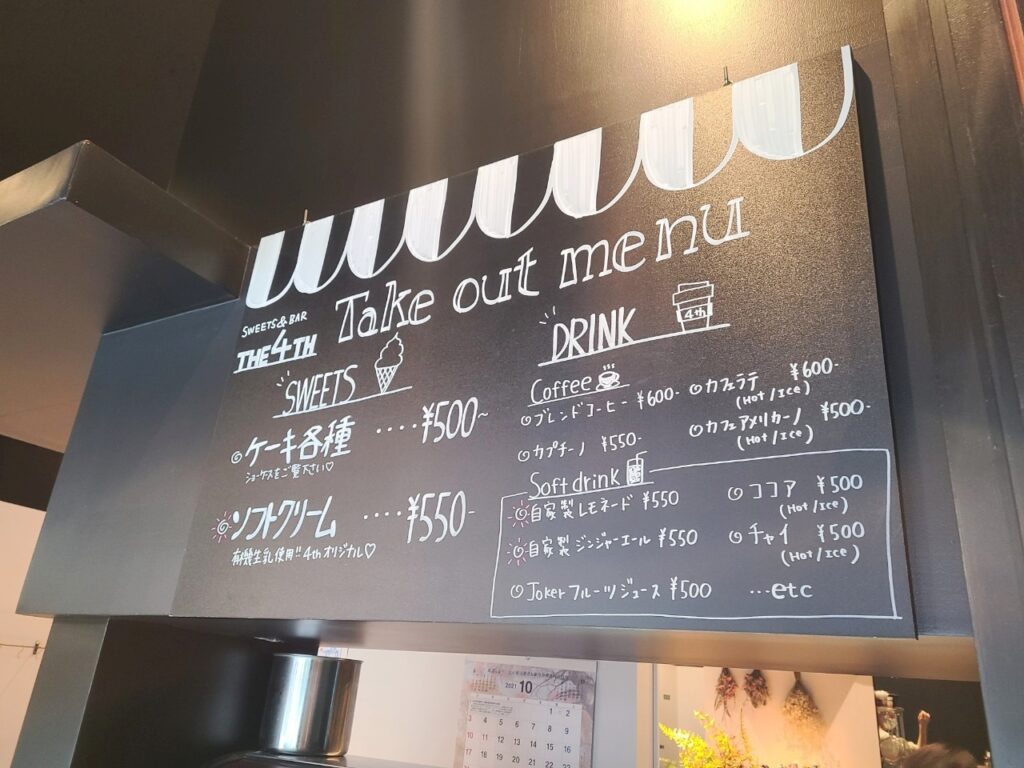 Take out menu
SWEETS & BAR
THE 4TH
SWEETS
ケーキ各種 ････ ¥500~
ショーケースをご覧下さい♡
ソフトクリーム ････ ¥550-
有機生乳使用!! 4thオリジナル♡
DRINK
4th
Coffee
ブレンドコーヒー ¥600-
カフェラテ ¥600-
(Hot/Ice)
カプチーノ ¥550-
カフェアメリカーノ ¥500-
(Hot/Ice)
Soft drink
自家製レモネード ¥550
ココア ¥500
(Hot/Ice)
自家製ジンジャーエール ¥550
チャイ ¥500
(Hot/Ice)
Jokerフルーツジュース ¥500
…etc
2021 10
1 2
3 4 5 6 7 8 9
10 11 12 13 14 15 16
17 18 19 20 21 22 23